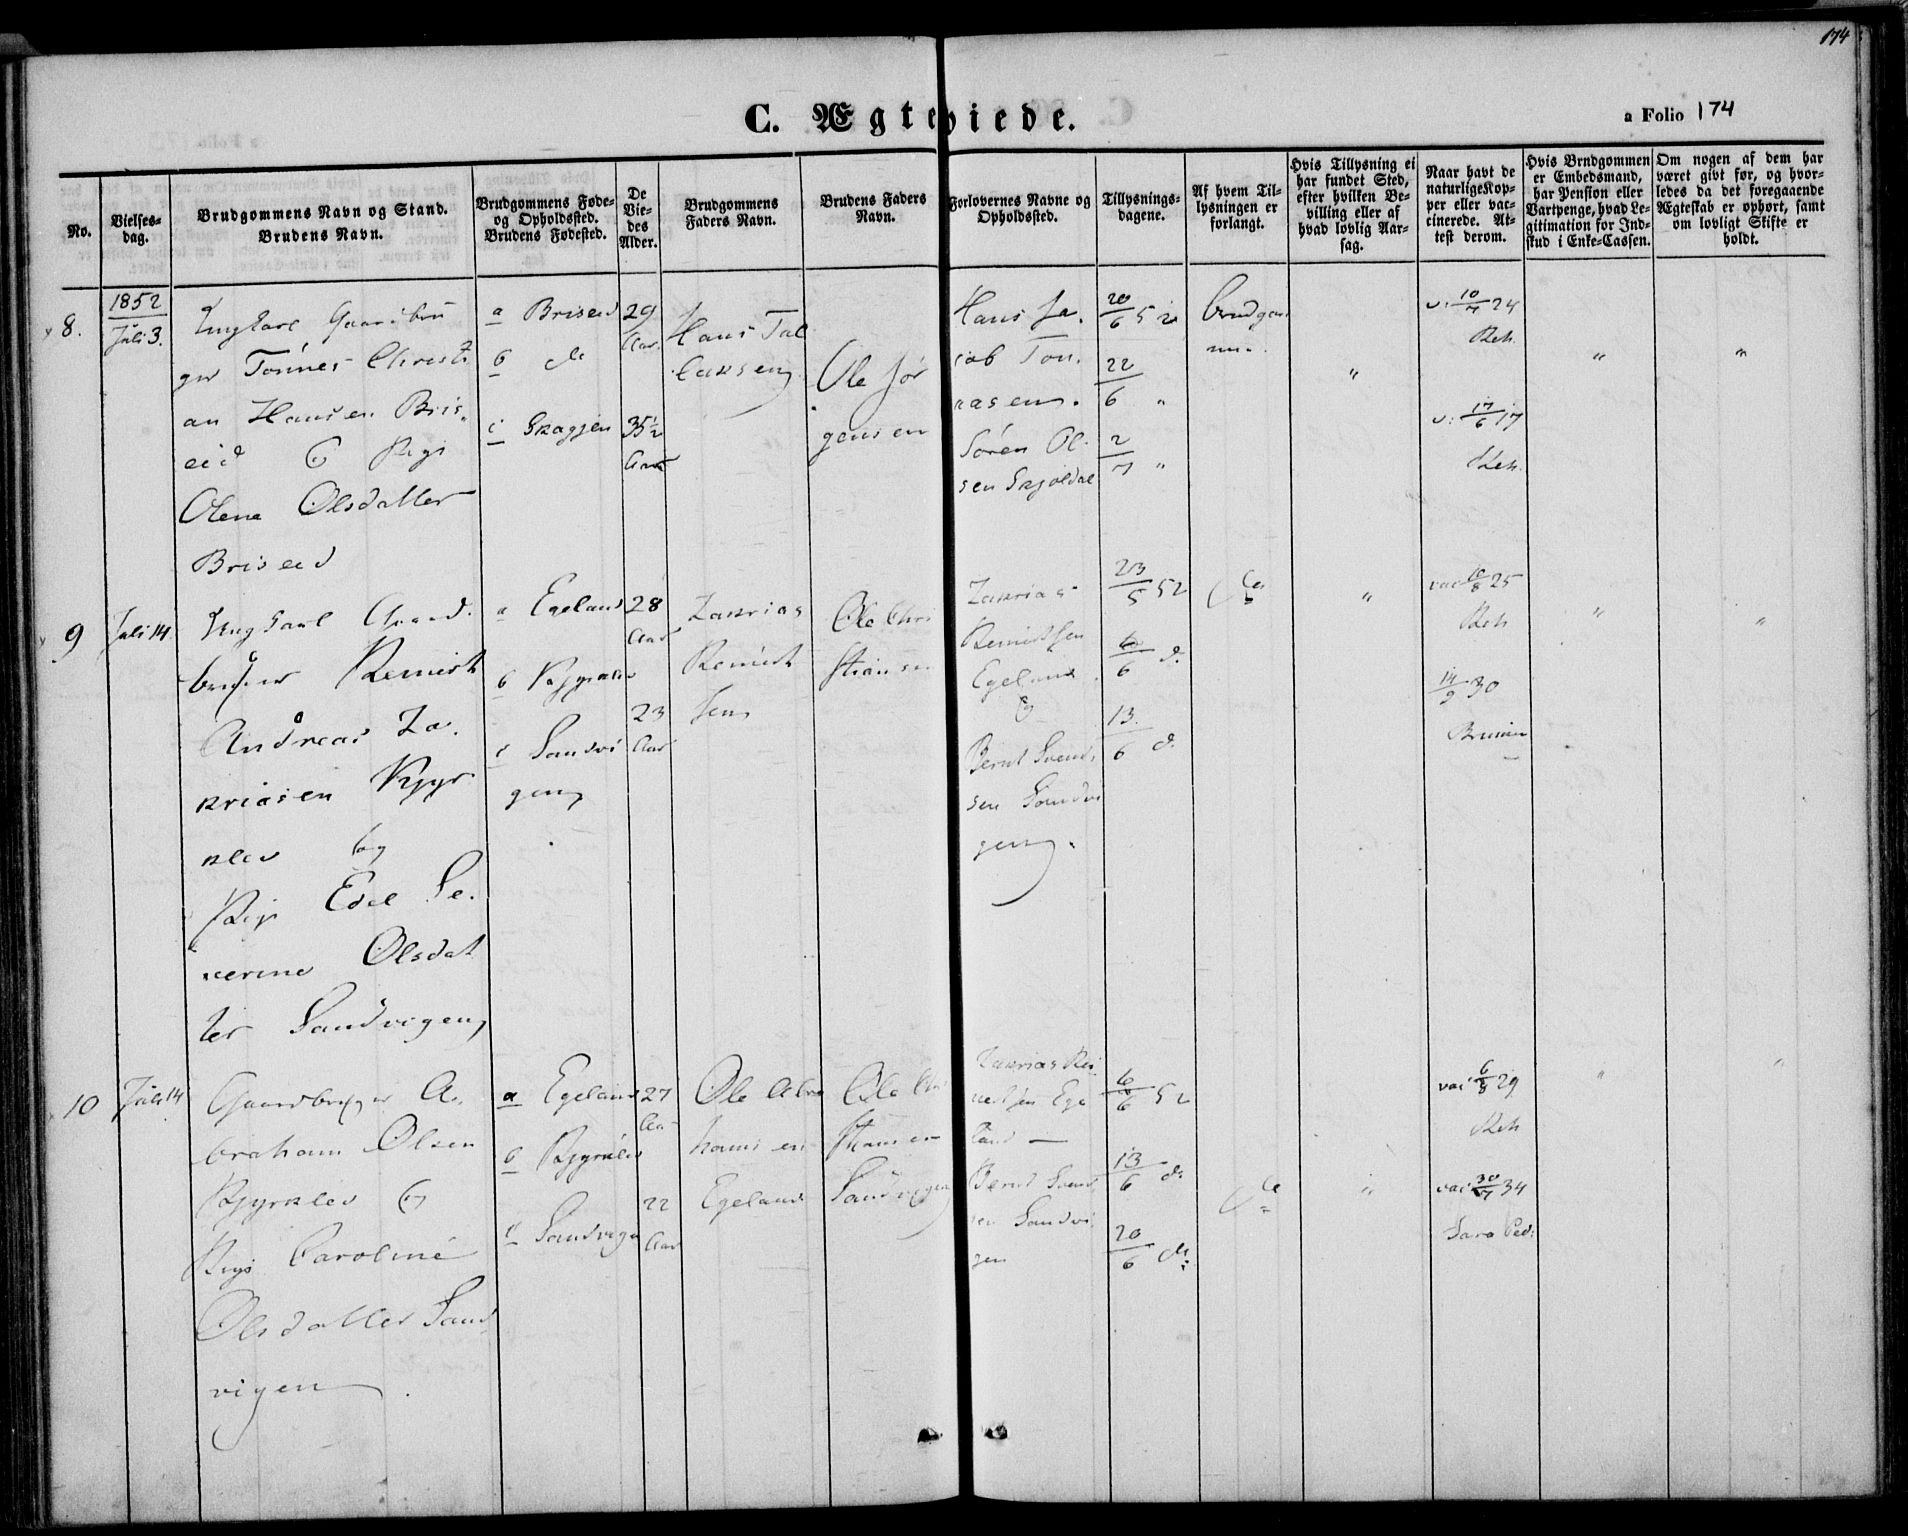 174
C. Ægteviede.
a Folio 174
No.
Vielses-
dag.
Brudgommens Navn og Stand.
Brudens Navn.
Brudgommens Føde-
og Opholdssted.
Brudens Fødested.
De
Vie-
des
Alder.
Brudgommens
Faders Navn.
Brudens Faders
Navn.
Forlovernes Navne og
Opholdssted.
Tillysnings-
dagene.
Af hvem Til-
lysningen er
forlangt.
Hvis Tillysning ei
har fundet Sted,
efter hvilken Be-
villing eller af
hvad lovlig Aar-
sag.
Naar havt de
naturlige Kop-
per eller vac-
cinerede. At-
test derom.
Hvis Brudgommen
er Embedsmand,
har Pension eller
Vartpenge, hvad Le-
gitimation for Ind-
skud i Enke-Cassen.
Om nogen af dem har
været givt før, og hvor-
ledes da det foregaaende
Ægteskab er ophørt, samt
om lovligt Skifte er
holdt.
8.
1852
Juli 3.
Ungkarl Gaardbru
ger Tönnes Christi
an Hansen Bris,
eid & Pige
Olene Olsdatter
Briseid
a Briseid
b do
c Skagjen
29
Aar
35½
Aar
Hans Tal
laksen
Ole Jör
gensen
Hans Ja.
cob Tön.
nasen.
Sören Ol.
sen Skjöldal
20/6 52
22/6 "
2/7 "
Brudgom
men.
"
v: 10/7 24
Reh.
v: 17/6 17
Reh.
"
"
9
Juli 14
Ungkarl Gaard.
bruger Reinert
Andreas Za.
kriasen Kyr
klev og
Pige Edel Se.
verine Olsdat
ter Sandvigen
a Egeland
b Kyrklev
c Sandvi
gen
28
Aar
23
Aar
Zakrias
Reinert
sen
Ole Chri
stiansen
Zakrias
Reinertsen
Egeland
&
Bernt Svend,
sen Sandvi
gen.
23/5 52
6/6 d.
13/6 d.
do
"
vac 10/8 25
Reh
14/9 30
"
"
10
Juli 14
Gaardbruger A.
braham Olsen
Kyrklev &
Pige Caroline
Olsdatter Sand
vigen
a Egeland
b Kyrklev
c Sandvigen
27
Aar
22
Aar
Ole Abra
hamsen
Egeland
Ole Chri
stiansen
Sandvigen
Zakrias Rei
nertsen Ege
land —
Bernt Svend
sen Sandvi
gen
6/6 52
13/6 d.
20/6 do
do
"
vac 6/8 29
Reh
vac 30/7 34
"
"